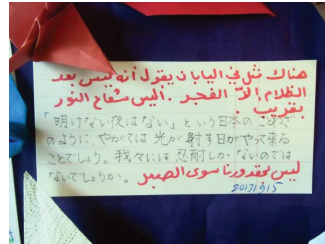 هناك مثل في اليابان يقول أنه ليس بعد
الظلام إلا الفجر . أليس شعاع النور
بقريب
「明けない夜はない」という日本のことわざ
のように、やがては光が射す日がやって来る
ことでしょう。我々には忍耐しかないのでは
ないでしょうか。 ليس بمقدورنا سوى الصبر
2013/9/15